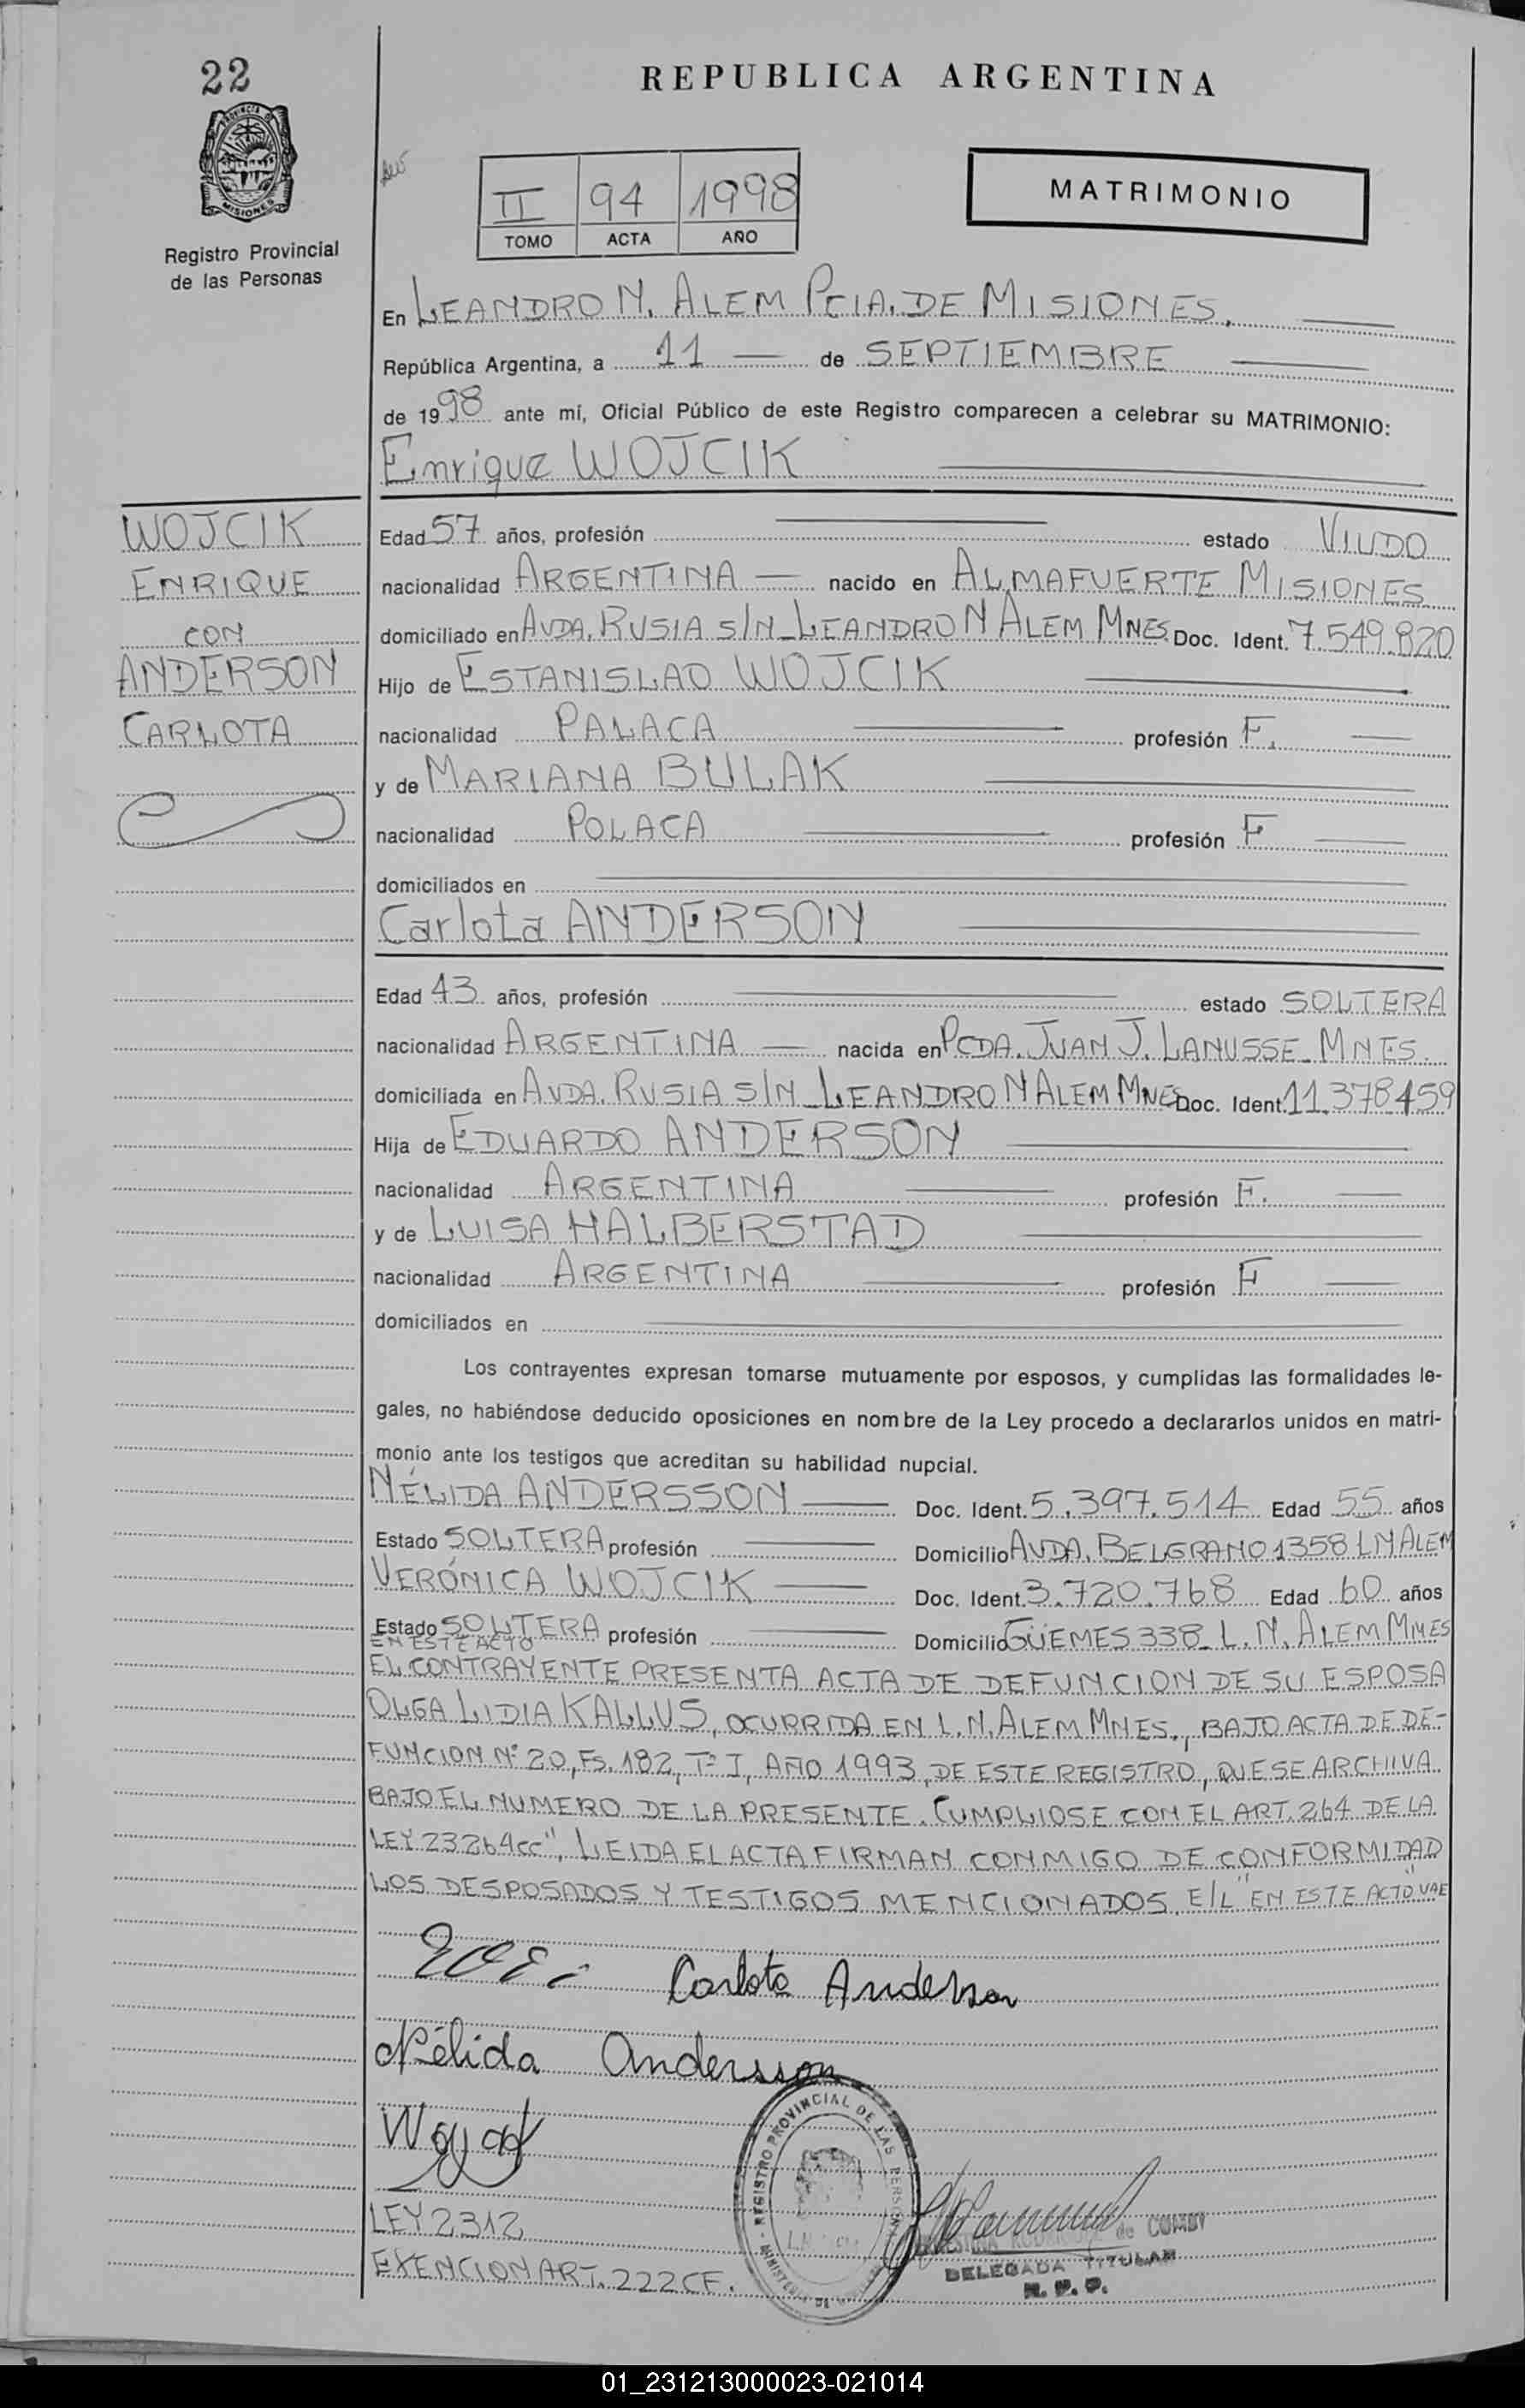 22
REPUBLICA ARGENTINA
PROVINCIA DE
MISIONES
Registro Provincial
de las Personas
II 94 1998
TOMO ACTA AÑO
MATRIMONIO
En LEANDRO N. ALEM PCIA. DE MISIONES,
República Argentina, a 11 de SEPTIEMBRE
de 1998 ante mí, Oficial Público de este Registro comparecen a celebrar su MATRIMONIO:
Enrique WOJCIK
WOJCIK
ENRIQUE
CON
ANDERSON
CARLOTA
Edad 57 años, profesión estado VIUDO
nacionalidad ARGENTINA nacido en ALMAFUERTE MISIONES
domiciliado en AVDA. RUSIA S/N_LEANDRO N ALEM MNES. Doc. Ident. 7.549.820
Hijo de ESTANISLAO WOJCIK
nacionalidad PALACA profesión F.
y de MARIANA BULAK
nacionalidad POLACA profesión F
domiciliados en
Carlota ANDERSON
Edad 43 años, profesión estado SOLTERA
nacionalidad ARGENTINA nacida en PCDA. JUAN J. LANUSSE_MNES.
domiciliada en AVDA. RUSIA S/N_LEANDRO N ALEM MNES Doc. Ident. 11.378.459
Hija de EDUARDO ANDERSON
nacionalidad ARGENTINA profesión F.
y de LUISA HALBERSTAD
nacionalidad ARGENTINA profesión F
domiciliados en
Los contrayentes expresan tomarse mutuamente por esposos, y cumplidas las formalidades le-
gales, no habiéndose deducido oposiciones en nombre de la Ley procedo a declararlos unidos en matri-
monio ante los testigos que acreditan su habilidad nupcial.
NÉLIDA ANDERSSON Doc. Ident. 5.397.514 Edad 55 años
Estado SOLTERA profesión Domicilio AVDA. BELGRANO 1358 L N ALEM
VERÓNICA WOJCIK Doc. Ident. 3.720.768 Edad 60 años
Estado SOLTERA profesión Domicilio GÜEMES 338_L.N. ALEM MNES
EN ESTE ACTO
EL CONTRAYENTE PRESENTA ACTA DE DEFUNCION DE SU ESPOSA
OLGA LIDIA KALLUS, OCURRIDA EN L.N. ALEM MNES., BAJO ACTA DE DE-
FUNCION Nº 20, FS. 182, Tº I, AÑO 1993, DE ESTE REGISTRO, QUE SE ARCHIVA
BAJO EL NUMERO DE LA PRESENTE. CUMPLIOSE CON EL ART. 264 DE LA
LEY 23264cc", LEIDA EL ACTA FIRMAN CONMIGO DE CONFORMIDAD
LOS DESPOSADOS Y TESTIGOS MENCIONADOS. E/L "EN ESTE ACTO" VAE
Carlota Anderson
Nélida Andersson
REGISTRO PROVINCIAL DE LAS PERSONAS
MINISTERIO DE
de COMBY
DELEGADA TITULAR
R. P. P.
LEY 2312
EXENCION ART. 222 CF.
01_231213000023-021014